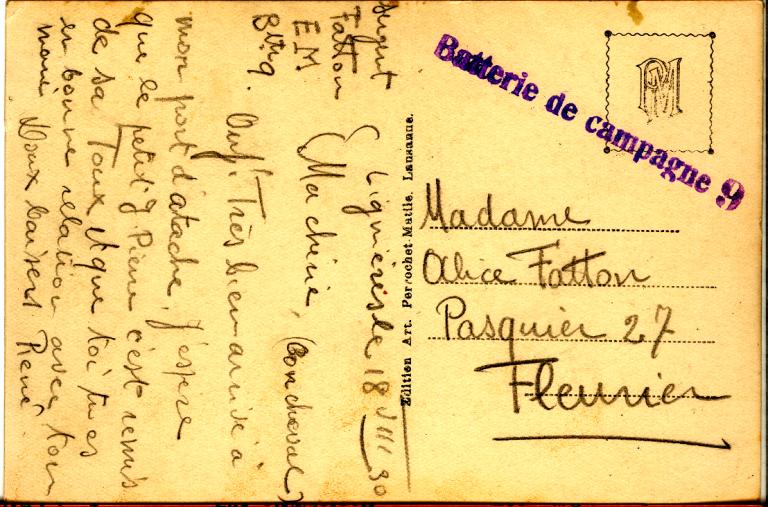 Sergent
Fatton
E M
Bttr 9.
Lignières le 18 VIII 30
Ma chérie, (bon cheval)
Ouf! Très bien arrivé à
mon port d'atache, j'espère
que le petit g Pierre c'est remis
de sa Toux et que toi tu es
en bonne relation avec ton
mari Doux baisers René.
Edition Art. Perrochet-Matile. Lausanne.
Batterie de campagne 9
PM
Madame
Alice Fatton
Pasquier 27
Fleurier